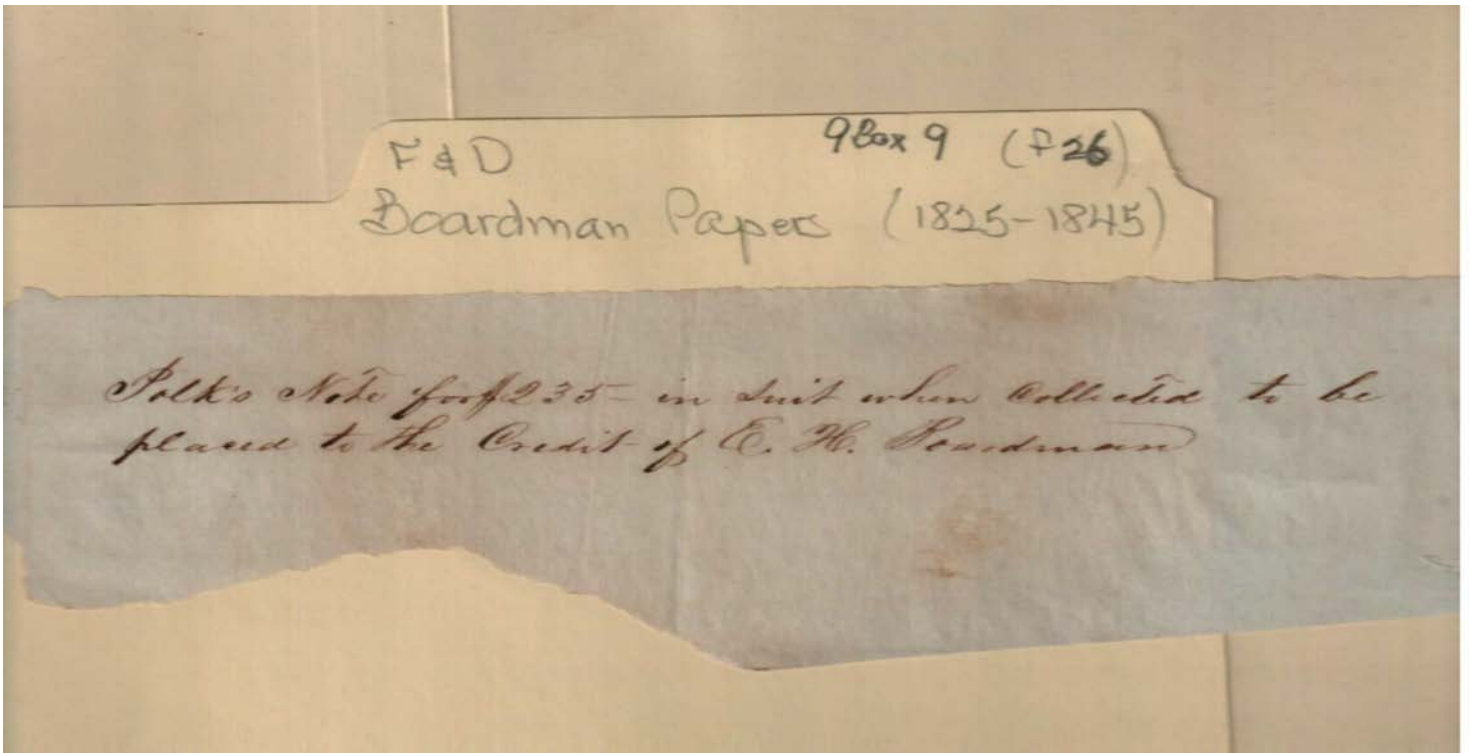 F & D
9 Box 9 (f 26)
Boardman Papers (1825-1845)
Polk's Note for $235- in suit when Collected to be
placed to the Credit of E. H. Boardman